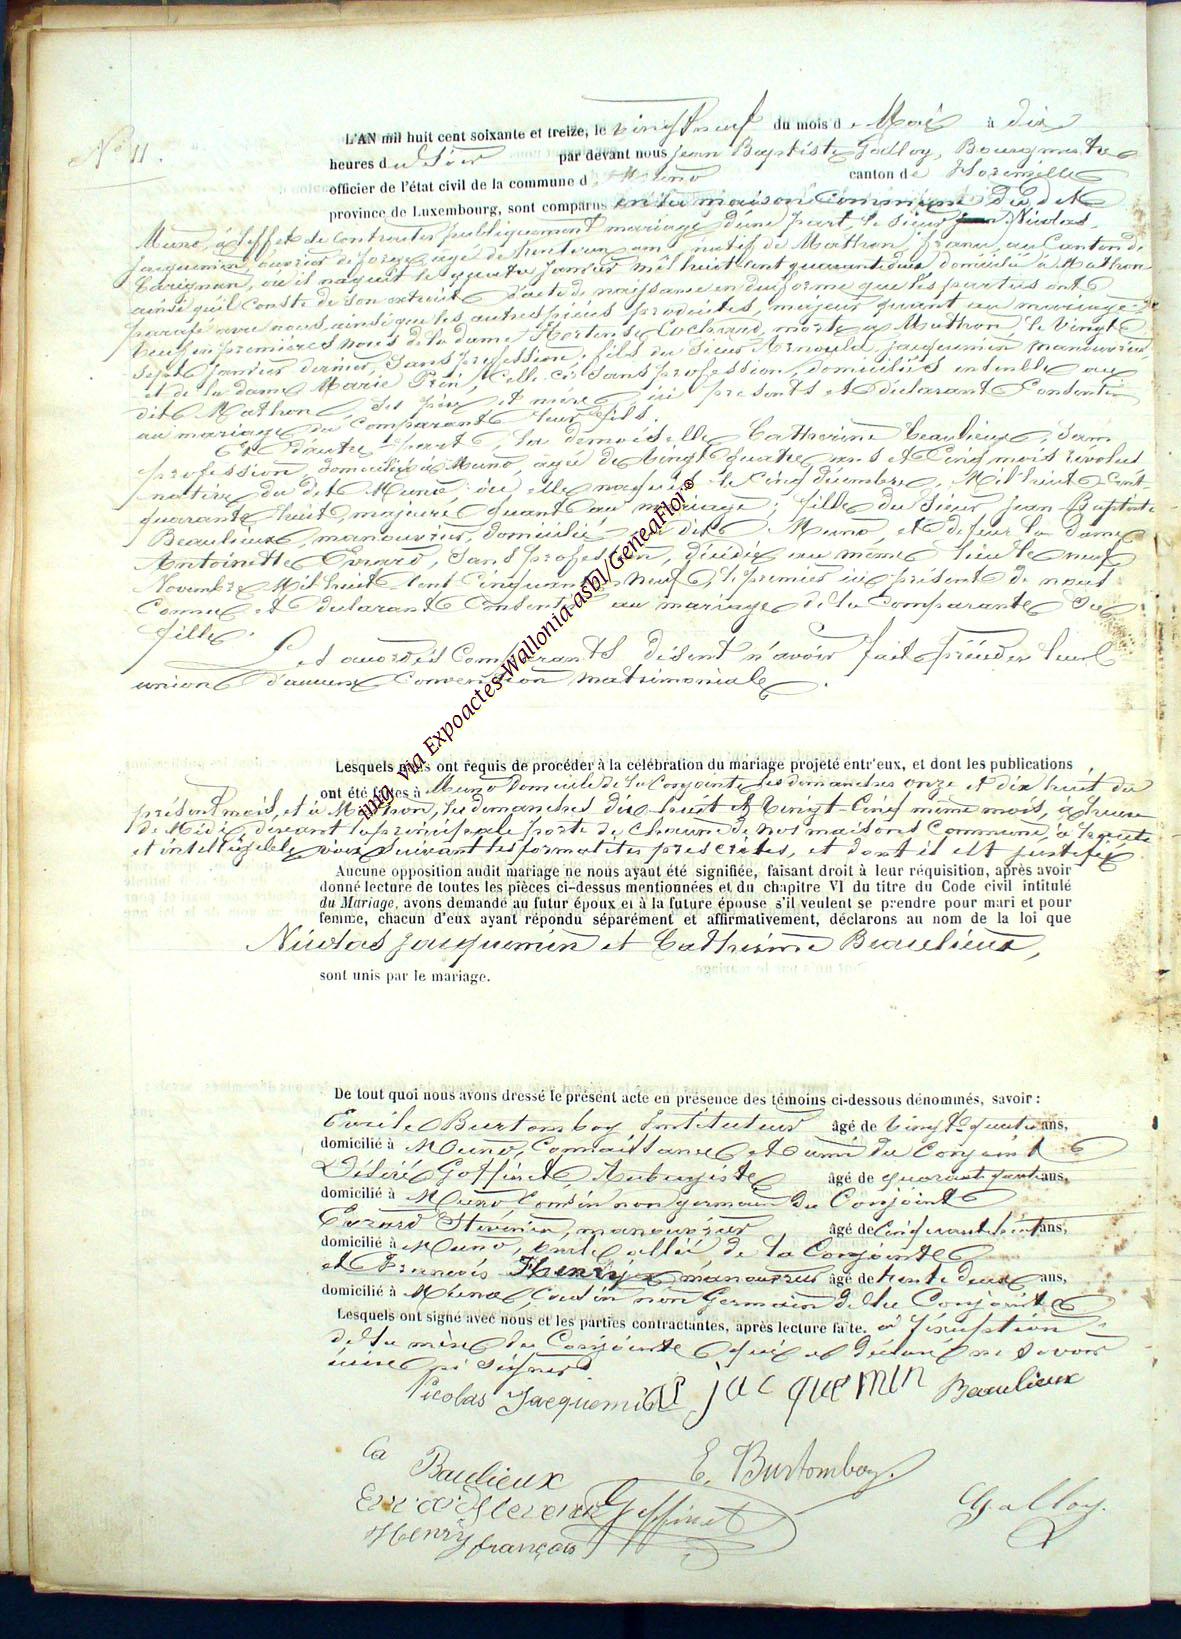 N° 11.
L'AN mil huit cent soixante et treize, le vingt neuf du mois de Mai à dix
heures du Soir par devant nous jean Baptiste Galloy, Bourgmestre
officier de l'état civil de la commune de Muno canton de Florenville
province de Luxembourg, sont comparus en la maison Commune du dit
Muno, à l'effet de contracter publiquement mariage, d'une part, le Sieur Nicolas
jacquemin, ouvrier de forge, agé de trente un ans natif de Mathon, france, au Canton de
Carignan, où il naquit le quatre janvier mil huit cent quarante deux domicilié à Mathon
ainsi qu'il Conste de son extrait d'acte de naissance en due forme que les parties ont
parafé avec nous, ainsi que les autres pièces produites, majeur quant au mariage,
veuf en premières noces de la dame Hortense Cochard, morte à Mathon le Vingt
Sept janvier dernier, Sans profession, fils du Sieur Arnould jacquemin manouvrier
et de la dame Marie Prin, Celle ci Sans profession, domiciliés ensemble au
dit Mathon, Ses père et mère, ici présents et déclarant Consentir
au mariage du Comparant leur fils.
Et d'autre part, la demoiselle Catherine Beaulieux, Sans
profession, domiciliée à Muno, agée de vingt quatre ans et Cinq mois révolus
native du dit Muno, où elle naquit le Cinq décembre, Mil huit Cent
quarante huit, majeure quant au mariage; fille du Sieur jean Baptiste
Beaulieux, manouvrier, domicilié au dit Muno, et de feue la dame
Antoinette Evrard, Sans profession, décédée au même lieu le neuf
Novembre Mil huit Cent Cinquante neuf, le premier ici présent de nous
Connu et déclarant Consentir au mariage de la Comparante Sa
fille.
Les accordés Comparants disent n'avoir fait précéder leur
union d'aucune Convention matrimoniale.
Lesquels nous ont requis de procéder à la célébration du mariage projeté entr'eux, et dont les publications
ont été faites à Muno domicile de la Conjointe les dimanches onze et dix huit du
présent mois, et à Mathon, les dimanches dix huit et Vingt Cinq même mois, à l'heure
de Midi, devant la principale porte de Chacune de nos maisons Commune, à haute
et intelligible voix Suivant les formalités prescrites, et dont il est justifié
Aucune opposition audit mariage ne nous ayant été signifiée, faisant droit à leur réquisition, après avoir
donné lecture de toutes les pièces ci-dessus mentionnées et du chapitre VI du titre du Code civil intitulé
du Mariage, avons demandé au futur époux et à la future épouse s'il veulent se prendre pour mari et pour
femme, chacun d'eux ayant répondu séparément et affirmativement, déclarons au nom de la loi que
Nicolas jacquemin et Catherine Beaulieux,
sont unis par le mariage.
De tout quoi nous avons dressé le présent acte en présence des témoins ci-dessous dénommés, savoir :
Burtomboy Instituteur âgé de vingt quatre ans,
domicilié à Muno, Connaissance et ami du Conjoint
Désiré Goffinet, Aubergiste âgé de ans,
domicilié à Muno Cousin non germain du Conjoint
Evrard Stévenin, manouvrier âgé de Cinquante huit ans,
domicilié à Muno, oncle allié de la Conjointe
et François Henry, manouvrier âgé de trente deux ans,
domicilié à Muno, Cousin non Germain de la Conjointe
Lesquels ont signé avec nous et les parties contractantes, après lecture faite. à l'exception
de la mère du Conjoint qui a déclaré ne Savoir
écrire ni Signer
Nicolas Jacquemin ar jacquemin Beaulieux
Ca Baulieux E. Burtomboy.
Goffinet Galloy.
Henry françois
img via Expoactes-Wallonia-asbl/GeneaFloi®